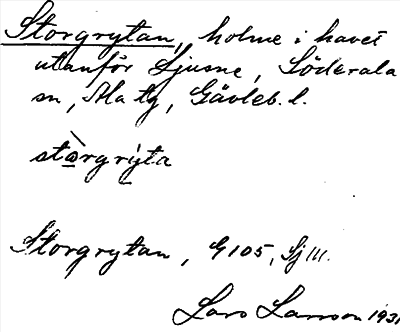 Storgrytan, holme i havet
utanför Ljusne, Söderala
sn, Ala tg, Gävleb. l.
stòrgrýta
Storgrytan, G 105, Sj III.
Lars Larsson 1931